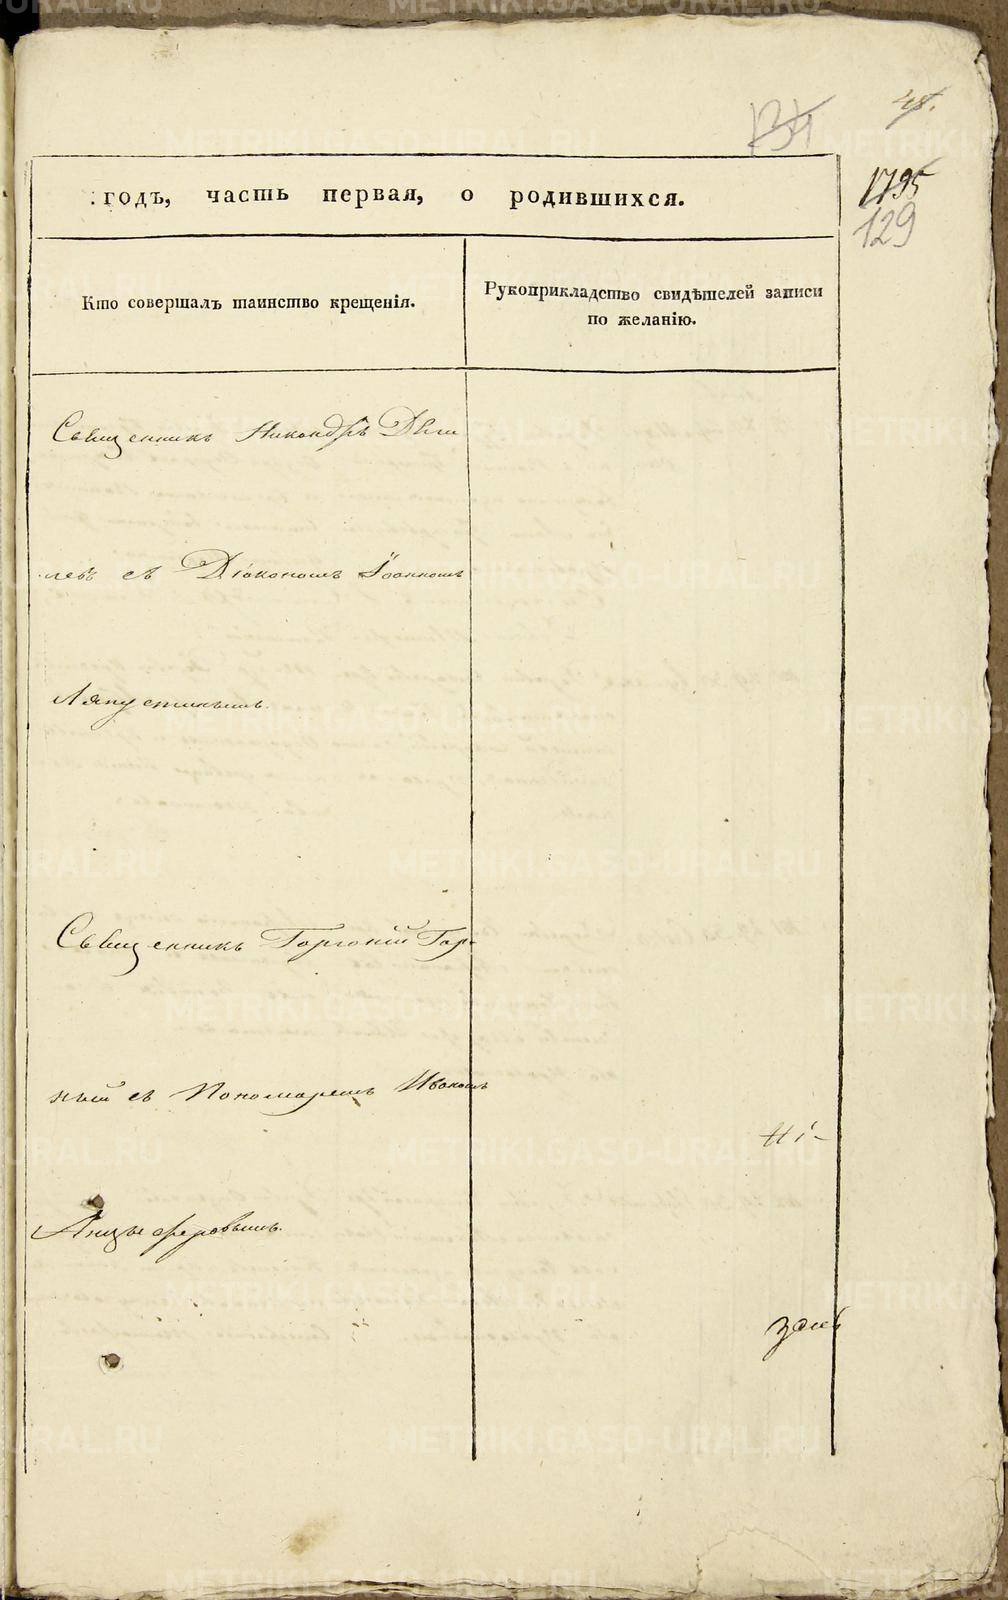 48.
134
1795
129
годъ, часть первая, о родившихся.
Кто совершалъ таинство крещенія.
Рукоприкладство свидѣтелей записи
по желанію.
Священникъ Никандръ
съ Діакономъ Іоанномъ
Ляпустинымъ.
Священникъ Горгоній Гор-
ный съ Пономаремъ Иваномъ
Анцыферовымъ.
METRIKI.GASO-URAL.RU